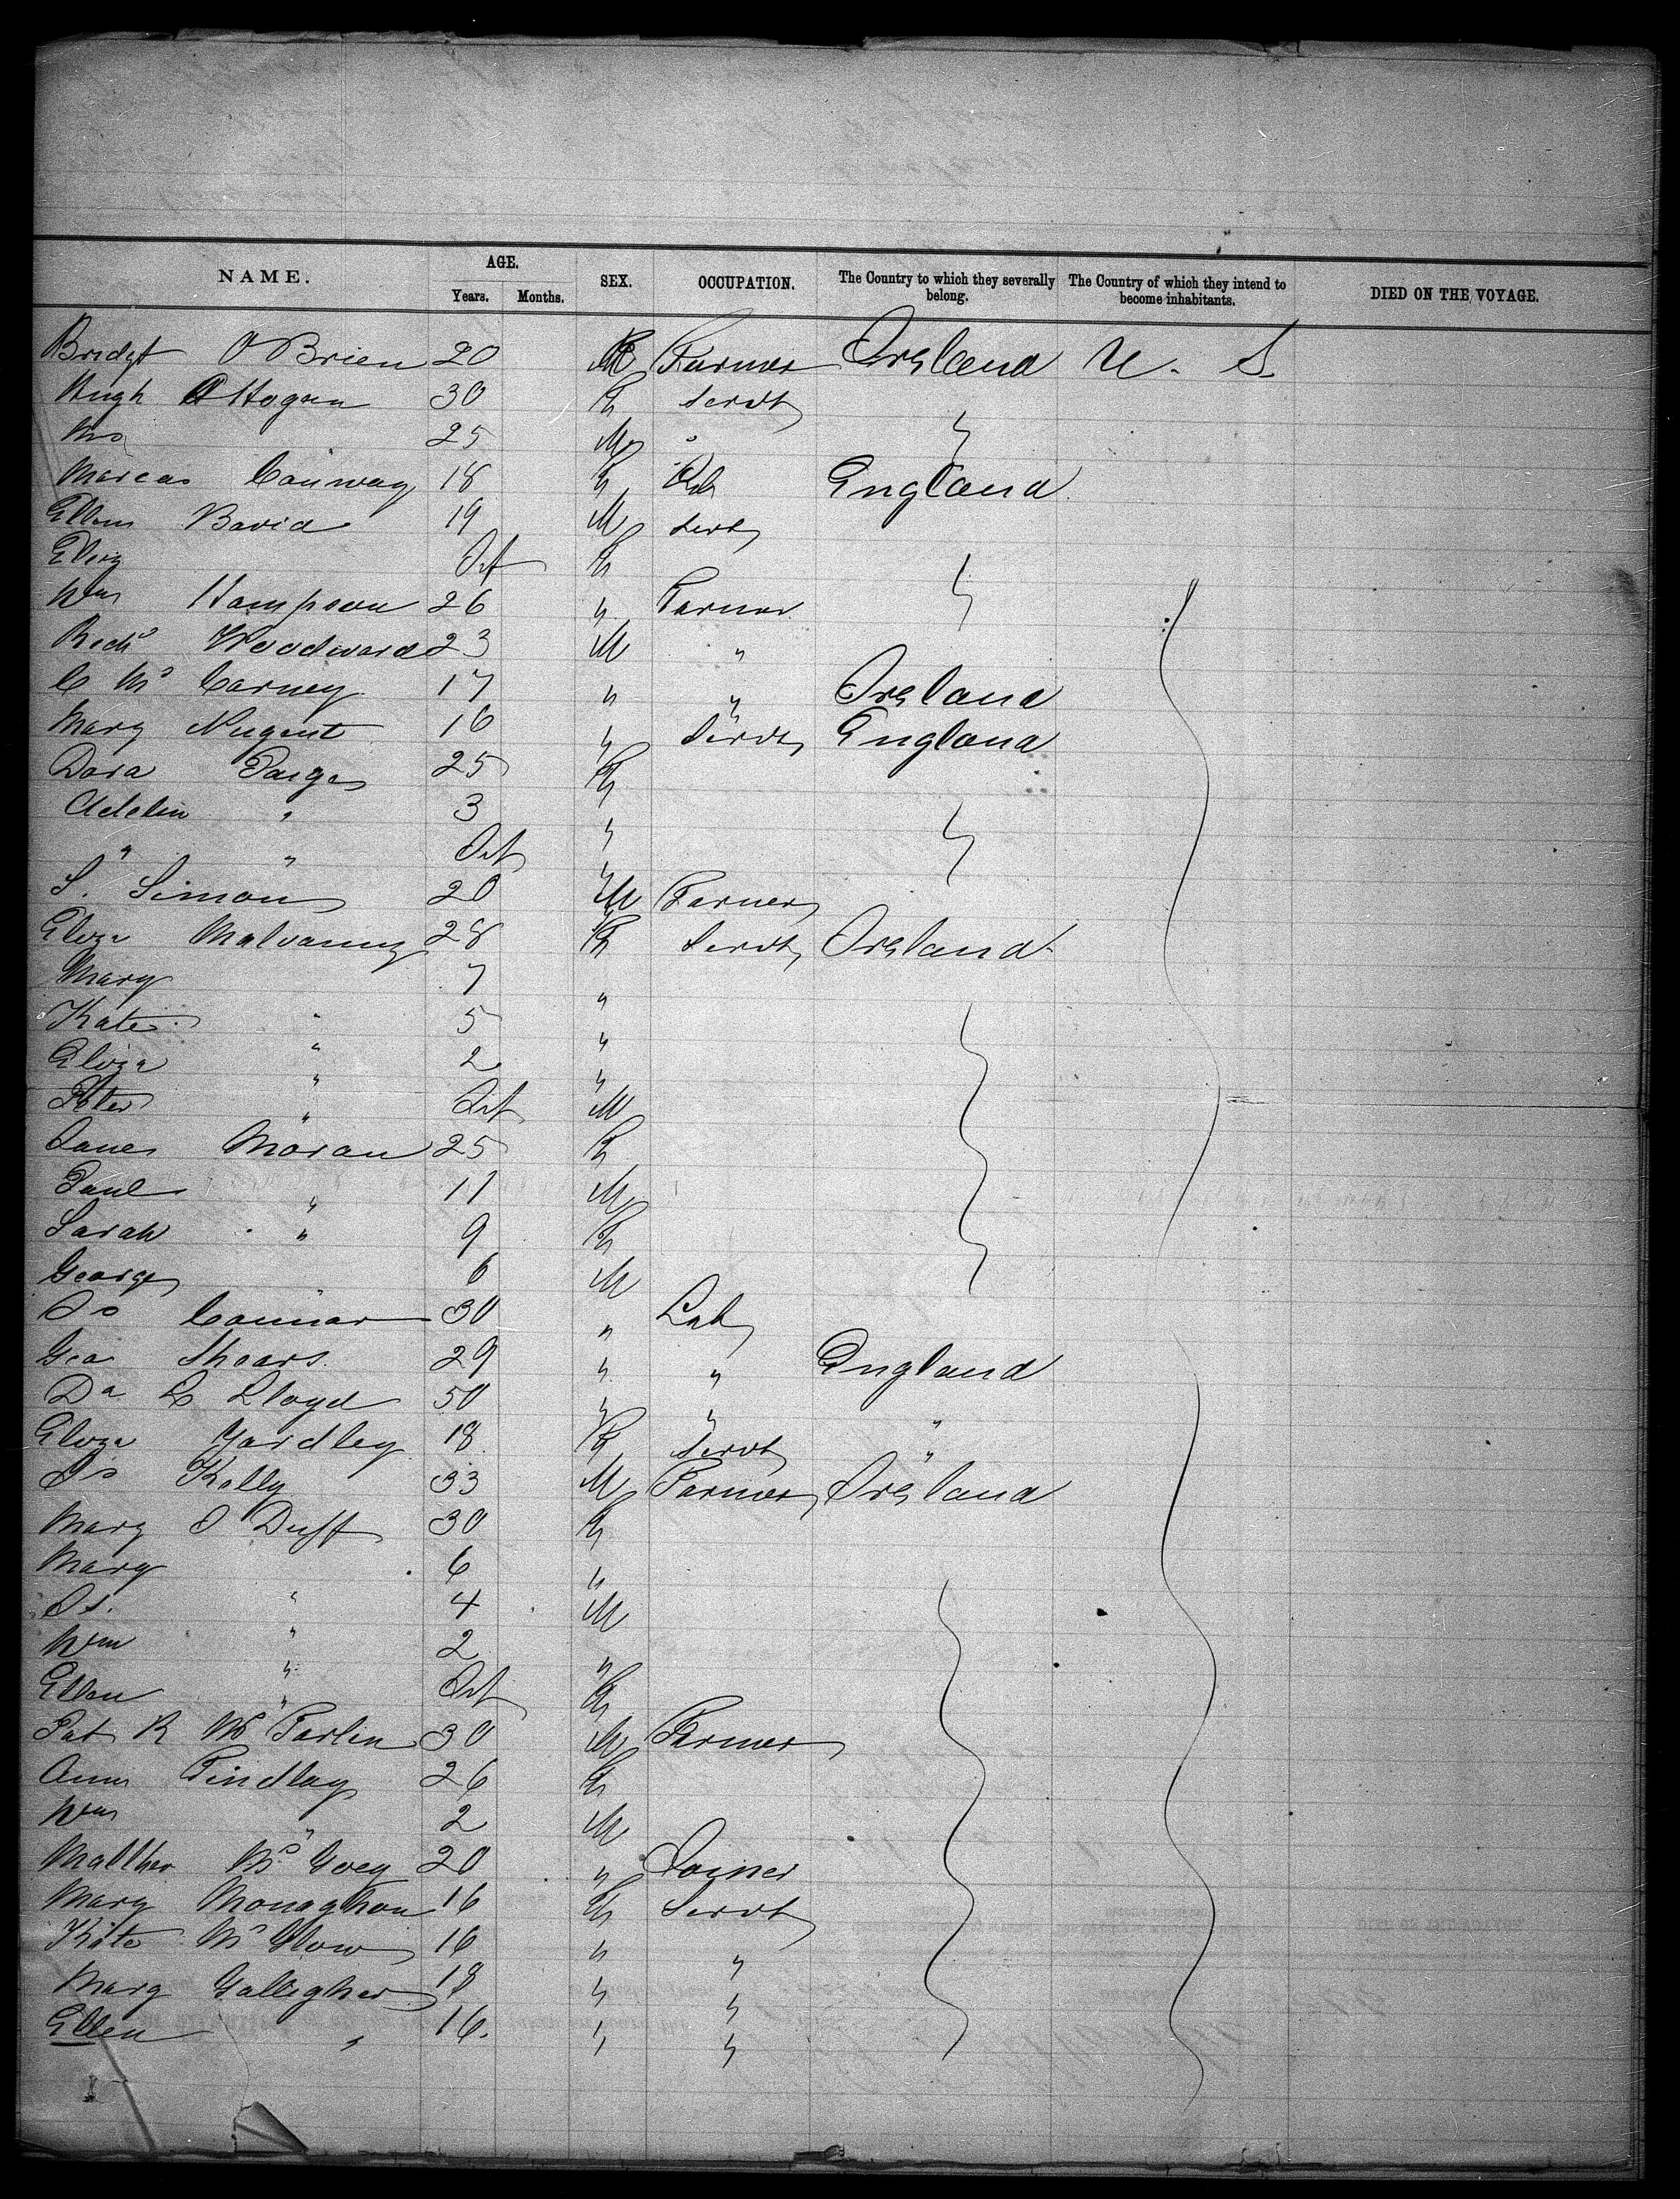 NAME. AGE. SEX. OCCUPATION. The Country to which they severally belong. The Country of which they intend to become inhabitants. DIED ON THE VOYAGE.
Years. Months.
Bridgt O Brien 20 Farmer Ireland U. S.
Hugh Hogan 30 F Servt
25 M "
Conway 18 F Lab England
Ellen 19 M Servt
Eliza Inf F
Wm Hampson 26 " Farmer
Richd Woodward 23 M "
C Mc Carney 17 " " Ireland
Mary Nugent 16 " Servt England
Dora Paige 25 F
Adelin " 3 "
" " Inf "
S. Simon 20 M Farmer
Eliza Mulvanny 28 F Servt Ireland
Mary 7 "
Kate " 5 "
Eliza " 2 "
Peter " Inf M
Jane Moran 25 F
Paul " 11 M
Sarah " 9 F
George " 6 M
Js Connor 30 " Lab
Geo Shears 29 " " England
Da L Lloyd 50 " " "
Eliza Yardley 18 F Servt "
Js Kelly 33 M Farmer Ireland
Mary O Duff 30 F
Mary 6 "
Js. " 4 M
Wm " 2 "
Ellen " Inf F
Pat R Mc Parlin 30 M Farmer
Ann Findlay 26 F
Wm " 2 M
Matthew Mc Goey 20 " Joiner
Mary Monaghan 16 F Servt
Kate Mc 16 " "
Mary Gallegher 18 " "
Ellen " 16. " "